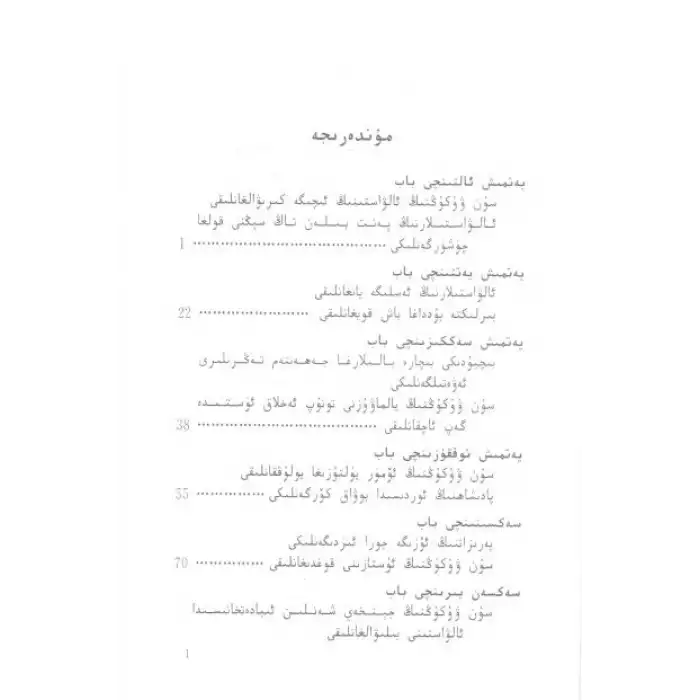 مۇندەرىجە
يەتمىش ئالتىنچى باب
سۇن ۋۇكۇڭنىڭ ئالۋاستىنىڭ ئىچىگە كىرىۋالغانلىقى
ئالۋاستىلارنىڭ پەنت بىلەن تاڭ سېڭنى قولغا
چۈشۈرگەنلىكى ........................................ 1
يەتمىش يەتتىنچى باب
ئالۋاستىلارنىڭ ئەسلىگە يانغانلىقى
بىرلىكتە بۇددىغا باش قويغانلىقى ........................ 22
يەتمىش سەككىزىنچى باب
بىچيۇدىكى بىچارە بالىلارغا جەھەننەم تەڭرىلىرى
ئەۋەتىلگەنلىكى
سۇن ۋۇكۇڭنىڭ يالماۋۇزنى تونۇپ ئەخلاق ئۈستىدە
گەپ ئاچقانلىقى ...................................... 38
يەتمىش توققۇزىنچى باب
سۇن ۋۇكۇڭنىڭ ئۆمۈر يۇلتۇزىغا يولۇققانلىقى
پادىشاھنىڭ ئوردىسىدا بوۋاق كۆرگەنلىكى ............... 55
سەكسىنىنچى باب
پەرىزاتنىڭ ئۆزىگە جورا ئىزدىگەنلىكى
سۇن ۋۇكۇڭنىڭ ئۇستازىنى قوغدىغانلىقى ............... 70
سەكسەن بىرىنچى باب
سۇن ۋۇكۇڭنىڭ جېنخەي شەنلىن ئىبادەتخانىسىدا
ئالۋاستىنى بىلىۋالغانلىقى
1